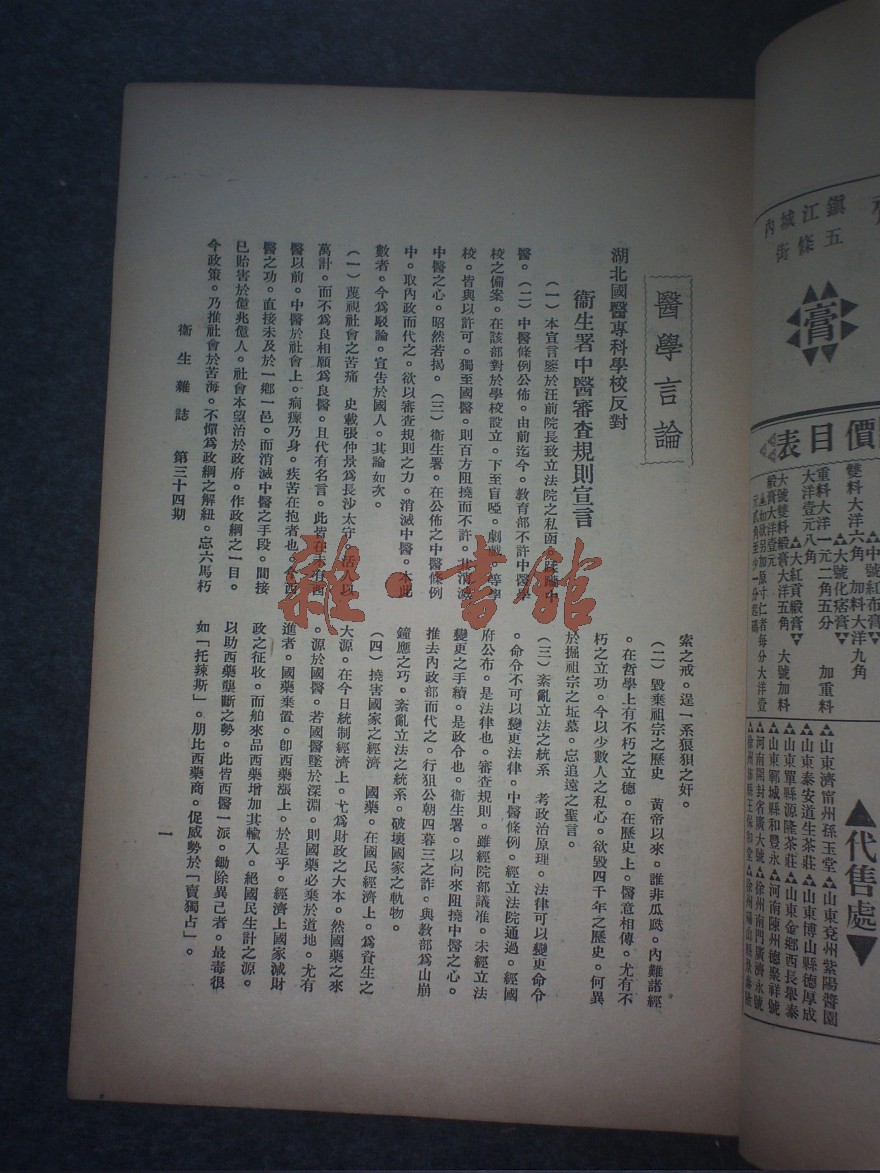 醫學言論
湖北國醫專科學校反對
衞生署中醫審査規則宣言
(一)本宣言鑒於汪前院長致立法院之私函。蹂躪中
醫。(二)中醫條例公佈。由前迄今。教育部不許中醫學
校之備案。在該部對於學校設立。下至盲啞。劇戲。等學
校。皆與以許可。獨至國醫。則百方阻撓而不許。其消滅
中醫之心。昭然若揭。(三)衞生署。在公佈之中醫條例
中。取內政而代之。欲以審査規則之力。消滅中醫。本此
數者。今爲駁論。宣告於國人。其論如次。
(一)蔑視社會之苦痛 史載張仲景爲長沙太守。活人以
萬計。而不爲良相願爲良醫。且代有名言。此皆在未有西
醫以前。中醫於社會上。痌瘝乃身。疾苦在抱者也。今西
醫之功。直接未及於一鄉一邑。而消滅中醫之手段。間接
已貽害於億兆億人。社會本望治於政府。作政綱之一目。
今政策。乃推社會於苦海。不憚爲政綱之解紐。忘六馬朽
索之戒。逞一系狼狽之奸。
(二)毀棄祖宗之歷史 黃帝以來。誰非瓜瓞。內難諸經
。在哲學上有不朽之立德。在歷史上。醫意相傳。尤有不
朽之立功。今以少數人之私心。欲毀四千年之歷史。何異
於掘祖宗之坵墓。忘追遠之聖言。
(三)紊亂立法之統系 考政治原理。法律可以變更命令
。命令不可以變更法律。中醫條例。經立法院通過。經國
府公布。是法律也。審査規則。雖經院部議准。未經立法
變更之手續。是政令也。衞生署。以向來阻撓中醫之心。
推去內政部而代之。行狙公朝四暮三之詐。與教部爲山崩
鐘應之巧。紊亂立法之統系。破壞國家之軌物。
(四)撓害國家之經濟 國藥。在國民經濟上。爲資生之
大源。在今日統制經濟上。尤爲財政之大本。然國藥之來
。源於國醫。若國醫墜於深淵。則國藥必棄於道地。尤有
進者。國藥棄置。卽西藥漲上。於是乎。經濟上國家減財
政之征收。而舶來品西藥增加其輸入。絕國民生計之源。
以助西藥壟斷之勢。此皆西醫一派。鋤除異己者。最毒很
如「托辣斯」。朋比西藥商。促威勢於「賣獨占」。
衞生雜誌 第三十四期
一
雜·書館
鎭江城內
五條街
膏
價目表
▲小紅布膏▼
雙料大洋六角 加料大洋九角
▲大號化痞膏▼
重料大洋一元二角五分 加重料
大洋壹元八角
▲大紅貢緞膏▼
大號雙料緞膏大洋五角 大號加料
緞膏大洋壹元
▲代售處▼
山東濟甯州孫玉堂 山東兗州紫陽醬園
山東泰安道生茶莊 山東博山縣德厚成
山東單縣源隆茶莊 山東金鄉西長舉泰
山東鄆城縣和豐永 河南陳州德聚祥號
河南開封省廣大號 徐州南門廣濟永號